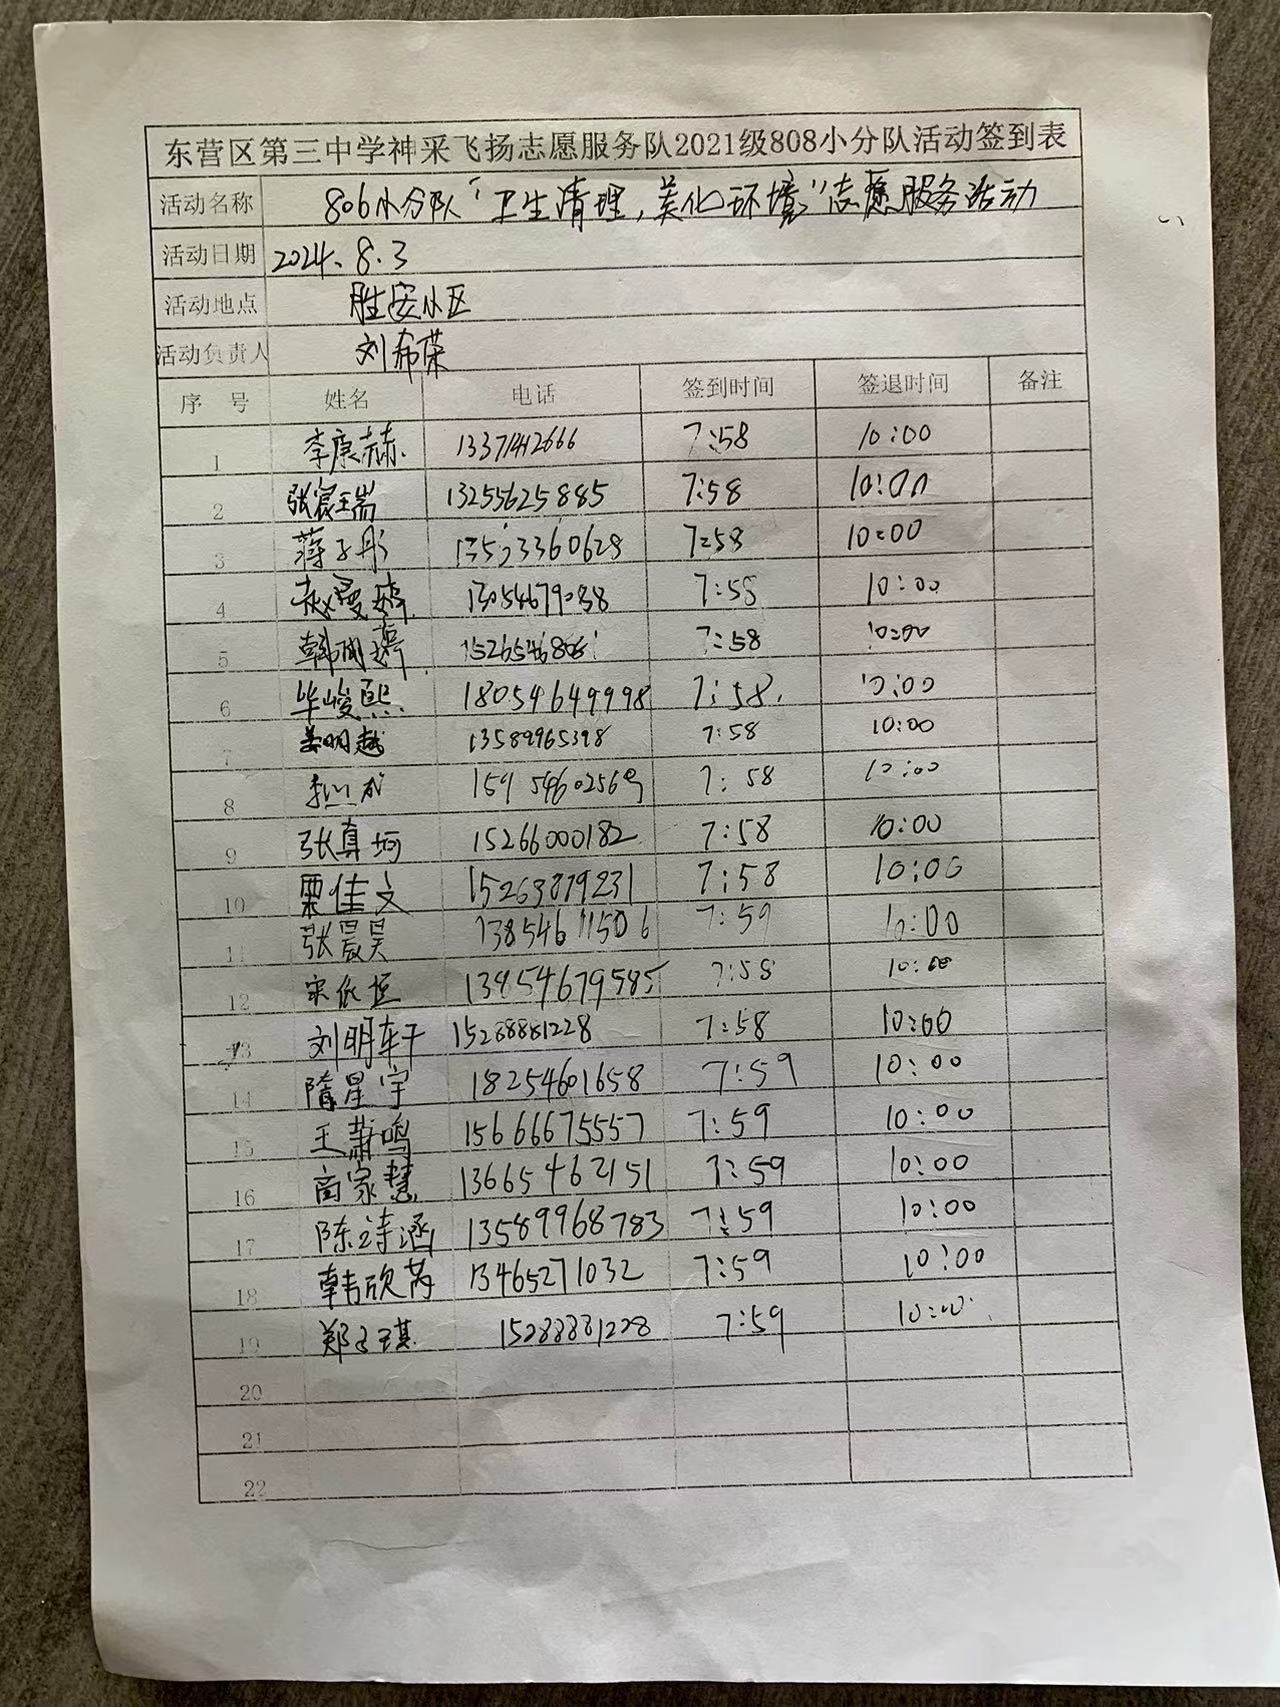 东营区第三中学神采飞扬志愿服务队2021级808小分队活动签到表
活动名称 806小分队“卫生清理,美化环境”志愿服务活动
活动日期 2024.8.3
活动地点 胜安小区
活动负责人 刘希荣
序号 姓名 电话 签到时间 签退时间 备注
1 李康赫 7:58 10:00
2 张宸瑞 13255625885 7:58 10:00
3 蒋子彤 7:58 10:00
4 赵曼婷 13054679088 7:58 10:00
5 7:58 10:00
6 毕峻熙 18054649998 7:58 10:00
7 姜明越 13589965398 7:58 10:00
8 7:58 10:00
9 张真珂 15266000182 7:58 10:00
10 栗佳文 15263879231 7:58 10:00
11 张晨昊 13854611506 7:59 10:00
12 宋依恒 13954679585 7:58 10:00
13 刘明轩 15288881228 7:58 10:00
14 隋星宇 18254601658 7:59 10:00
15 王萧鸣 15666675557 7:59 10:00
16 商家慧 13665462151 7:59 10:00
17 陈诗涵 13589968783 7:59 10:00
18 韩欣芮 13465271032 7:59 10:00
19 郑子琪 15288881228 7:59 10:00
20
21
22